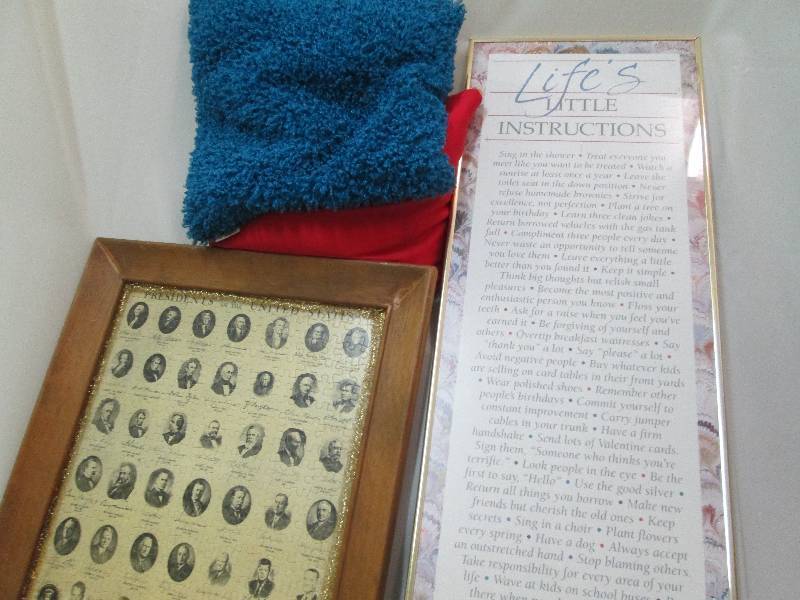 PRESIDENTS OF THE UNITED STATES
Life's
LITTLE
INSTRUCTIONS
Sing in the shower • Treat everyone you
meet like you want to be treated • Watch a
sunrise at least once a year • Leave the
toilet seat in the down position • Never
refuse homemade brownies • Strive for
excellence, not perfection • Plant a tree on
your birthday • Learn three clean jokes •
Return borrowed vehicles with the gas tank
full • Compliment three people every day •
Never waste an opportunity to tell someone
you love them • Leave everything a little
better than you found it • Keep it simple •
Think big thoughts but relish small
pleasures • Become the most positive and
enthusiastic person you know • Floss your
teeth • Ask for a raise when you feel you've
earned it • Be forgiving of yourself and
others • Overtip breakfast waitresses • Say
"thank you" a lot • Say "please" a lot •
Avoid negative people • Buy whatever kids
are selling on card tables in their front yards
• Wear polished shoes • Remember other
people's birthdays • Commit yourself to
constant improvement • Carry jumper
cables in your trunk • Have a firm
handshake • Send lots of Valentine cards.
Sign them, "Someone who thinks you're
terrific." • Look people in the eye • Be the
first to say, "Hello" • Use the good silver •
Return all things you borrow • Make new
friends but cherish the old ones • Keep
secrets • Sing in a choir • Plant flowers
every spring • Have a dog • Always accept
an outstretched hand • Stop blaming others.
Take responsibility for every area of your
life • Wave at kids on school buses • B
there when